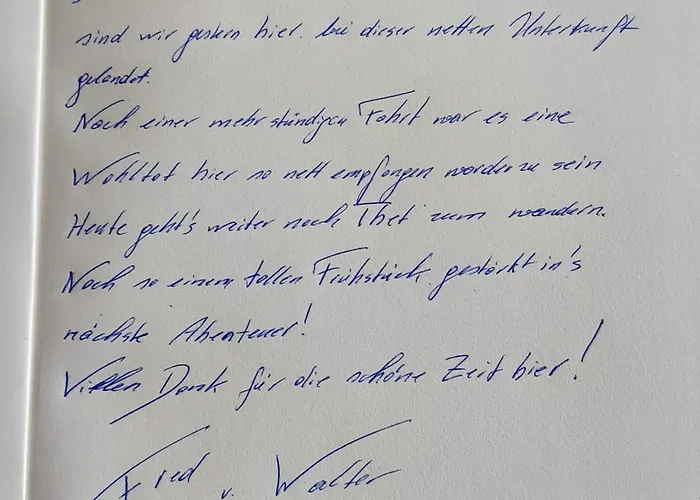 sind wir gestern hier bei dieser netten Unterkunft
gelandet.
Nach einer mehrstündigen Fahrt war es eine
Wohltat hier so nett empfangen worden zu sein
Heute geht's weiter nach Thet zum wandern.
Nach so einem tollen Frühstück gestärkt in's
nächste Abenteuer!
Vielen Dank für die schöne Zeit hier!
Fred u. Walter